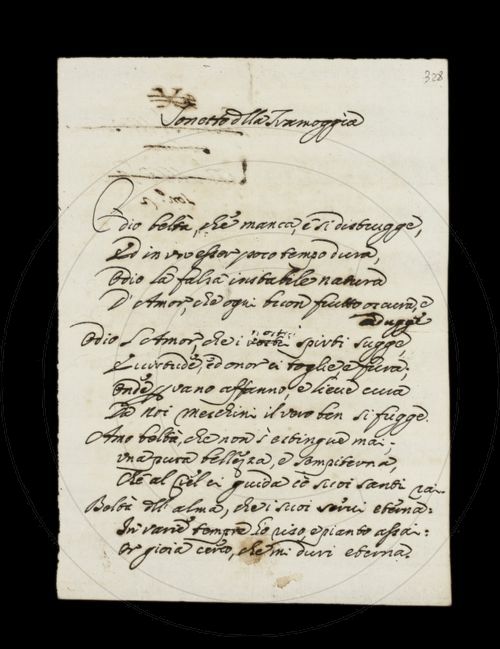 328
Sonetto dlla Tramoggia
Odio beltà, che manca, e si distrugge,
Ed in un esser poco tempo dura,
Odio la falsa instabile natura
D'Amor, che ogni buon frutto oscura, e
adugge
Odio l'Amor che i nostri spirti sugge,
E virtude, ed onor ci toglie, e fura.
Onde vano affanno, e lieve cura
Da noi meschini il vero ben si fugge.
Amo beltà, che non s'estingue mai,
una pura bellezza, e sempiterna,
Che al Ciel ci guida co' suoi santi rai
Beltà dll'alma, che i suoi eterna:
In varie tempre ho riso, e pianto assai:
Or gioia cerco, che mi duri eterna.